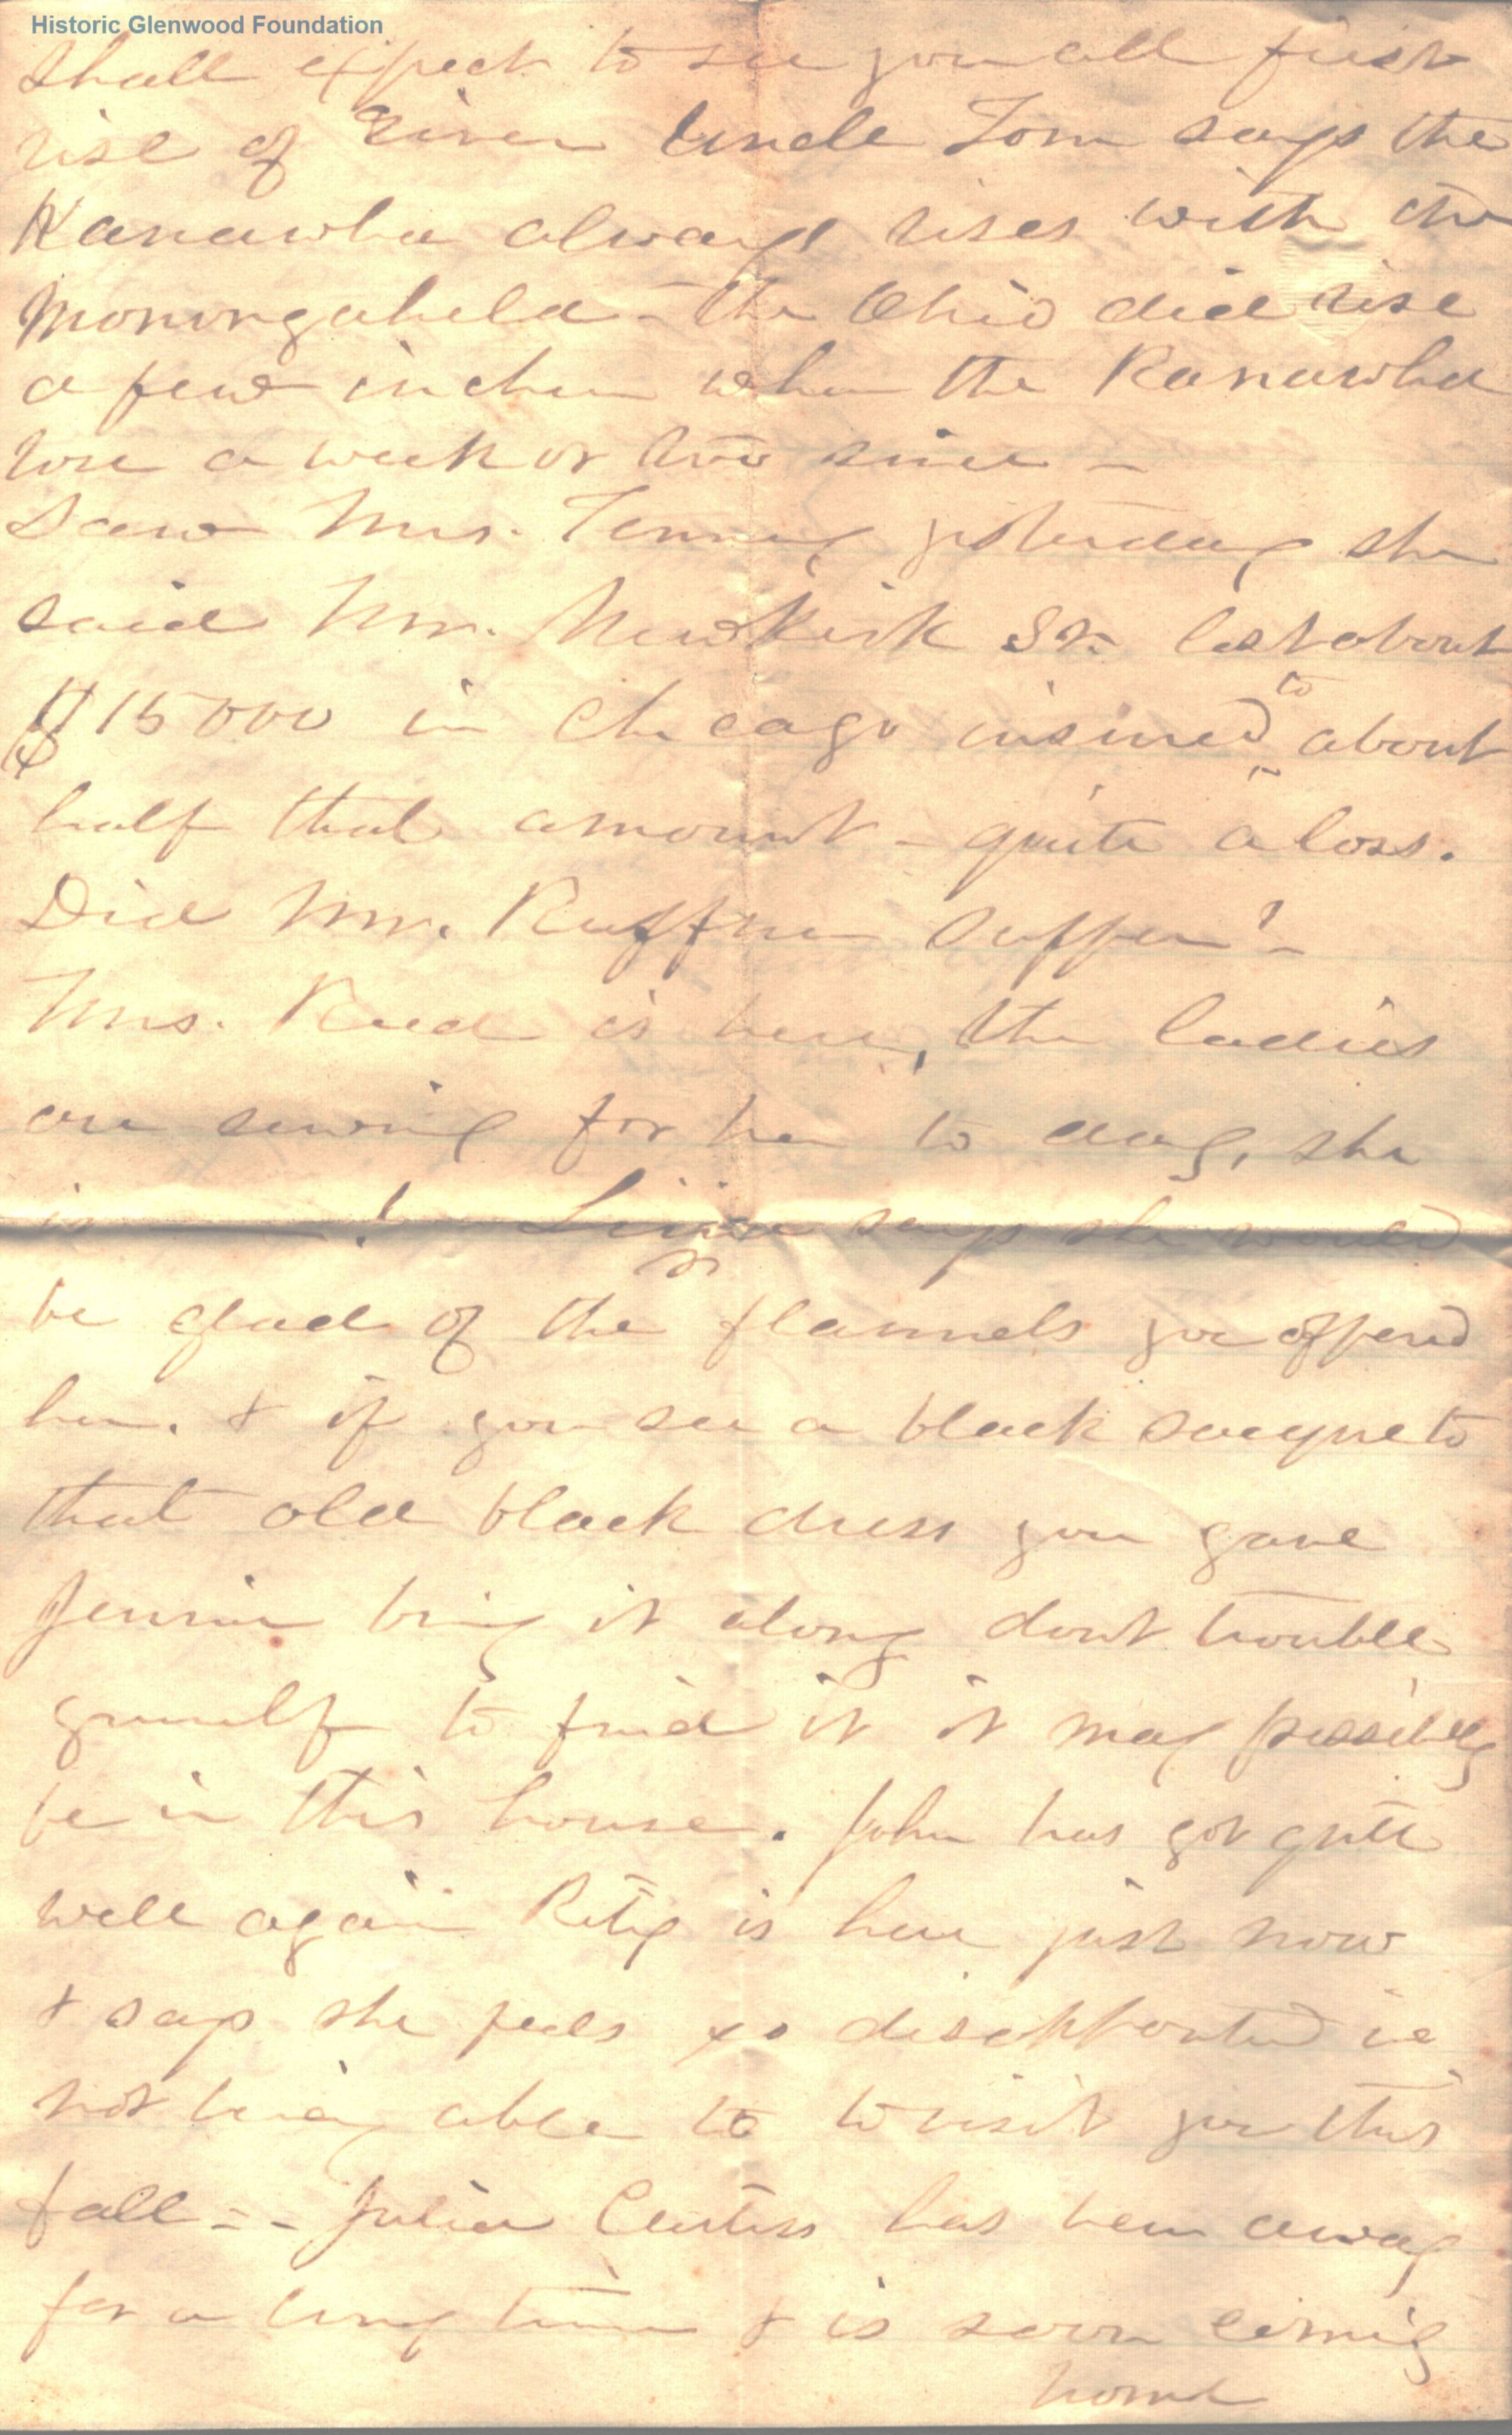 Historic Glenwood Foundation
shall expect to see you all first
rise of River Uncle Tom says the
Kanawha always rises with the
Monongahela - the Ohio did rise
a few inches when the Kanawha
rose a week or two since -
Saw Mrs. Tenney yesterday she
said Mr. Newkirk Sr. lost about
$15000 in Chicago insured to about
half that amount - quite a loss.
Did Mr. Ruffner suffer? -
Mrs. Reed is here, the ladies
are sewing for her to day, she
is ! says she would
be glad of the flannels you offered
her. & if you see a black sacque to
that old black dress you gave
Jennie bring it along dont trouble
yourself to find it it may possibly
be in this house. John has got quite
well again is here just now
& says she feels so disappointed in
not being able to to visit you this
fall - - Julia Curtiss has been away
for a long time & is soon coming
home